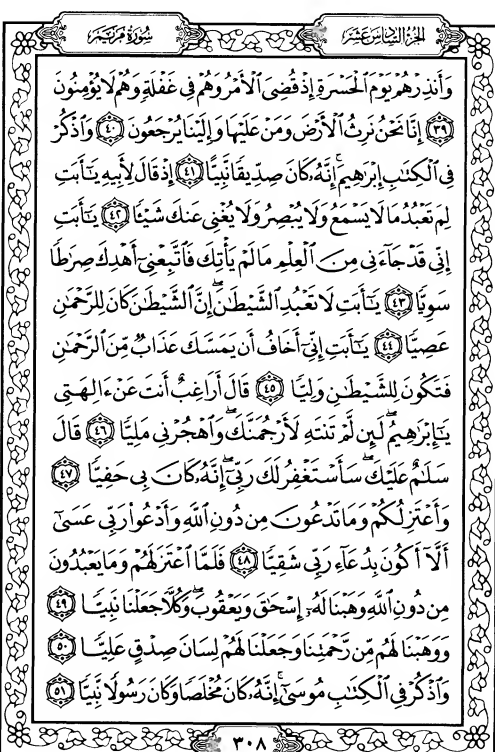 الجزء السادس عشر
سورة مريم
وَأَنذِرْهُمْ يَوْمَ الْحَسْرَةِ إِذْ قُضِيَ الْأَمْرُ وَهُمْ فِي غَفْلَةٍ وَهُمْ لَا يُؤْمِنُونَ
﴿٣٩﴾ إِنَّا نَحْنُ نَرِثُ الْأَرْضَ وَمَنْ عَلَيْهَا وَإِلَيْنَا يُرْجَعُونَ ﴿٤٠﴾ وَاذْكُرْ
فِي الْكِتَٰبِ إِبْرَٰهِيمَ ۚ إِنَّهُۥ كَانَ صِدِّيقًا نَّبِيًّا ﴿٤١﴾ إِذْ قَالَ لِأَبِيهِ يَٰٓأَبَتِ
لِمَ تَعْبُدُ مَا لَا يَسْمَعُ وَلَا يُبْصِرُ وَلَا يُغْنِي عَنكَ شَيْـًٔا ﴿٤٢﴾ يَٰٓأَبَتِ
إِنِّي قَدْ جَآءَنِي مِنَ الْعِلْمِ مَا لَمْ يَأْتِكَ فَاتَّبِعْنِيٓ أَهْدِكَ صِرَٰطًا
سَوِيًّا ﴿٤٣﴾ يَٰٓأَبَتِ لَا تَعْبُدِ الشَّيْطَٰنَ ۖ إِنَّ الشَّيْطَٰنَ كَانَ لِلرَّحْمَٰنِ
عَصِيًّا ﴿٤٤﴾ يَٰٓأَبَتِ إِنِّيٓ أَخَافُ أَن يَمَسَّكَ عَذَابٌ مِّنَ الرَّحْمَٰنِ
فَتَكُونَ لِلشَّيْطَٰنِ وَلِيًّا ﴿٤٥﴾ قَالَ أَرَاغِبٌ أَنتَ عَنْ ءَالِهَتِي
يَٰٓإِبْرَٰهِيمُ ۖ لَئِن لَّمْ تَنتَهِ لَأَرْجُمَنَّكَ ۖ وَاهْجُرْنِي مَلِيًّا ﴿٤٦﴾ قَالَ
سَلَٰمٌ عَلَيْكَ ۖ سَأَسْتَغْفِرُ لَكَ رَبِّيٓ ۖ إِنَّهُۥ كَانَ بِي حَفِيًّا ﴿٤٧﴾
وَأَعْتَزِلُكُمْ وَمَا تَدْعُونَ مِن دُونِ اللَّهِ وَأَدْعُوا۟ رَبِّي عَسَىٰٓ
أَلَّآ أَكُونَ بِدُعَآءِ رَبِّي شَقِيًّا ﴿٤٨﴾ فَلَمَّا اعْتَزَلَهُمْ وَمَا يَعْبُدُونَ
مِن دُونِ اللَّهِ وَهَبْنَا لَهُۥٓ إِسْحَٰقَ وَيَعْقُوبَ ۖ وَكُلًّا جَعَلْنَا نَبِيًّا ﴿٤٩﴾
وَوَهَبْنَا لَهُم مِّن رَّحْمَتِنَا وَجَعَلْنَا لَهُمْ لِسَانَ صِدْقٍ عَلِيًّا ﴿٥٠﴾
وَاذْكُرْ فِي الْكِتَٰبِ مُوسَىٰٓ ۚ إِنَّهُۥ كَانَ مُخْلَصًا وَكَانَ رَسُولًا نَّبِيًّا ﴿٥١﴾
٣٠٨